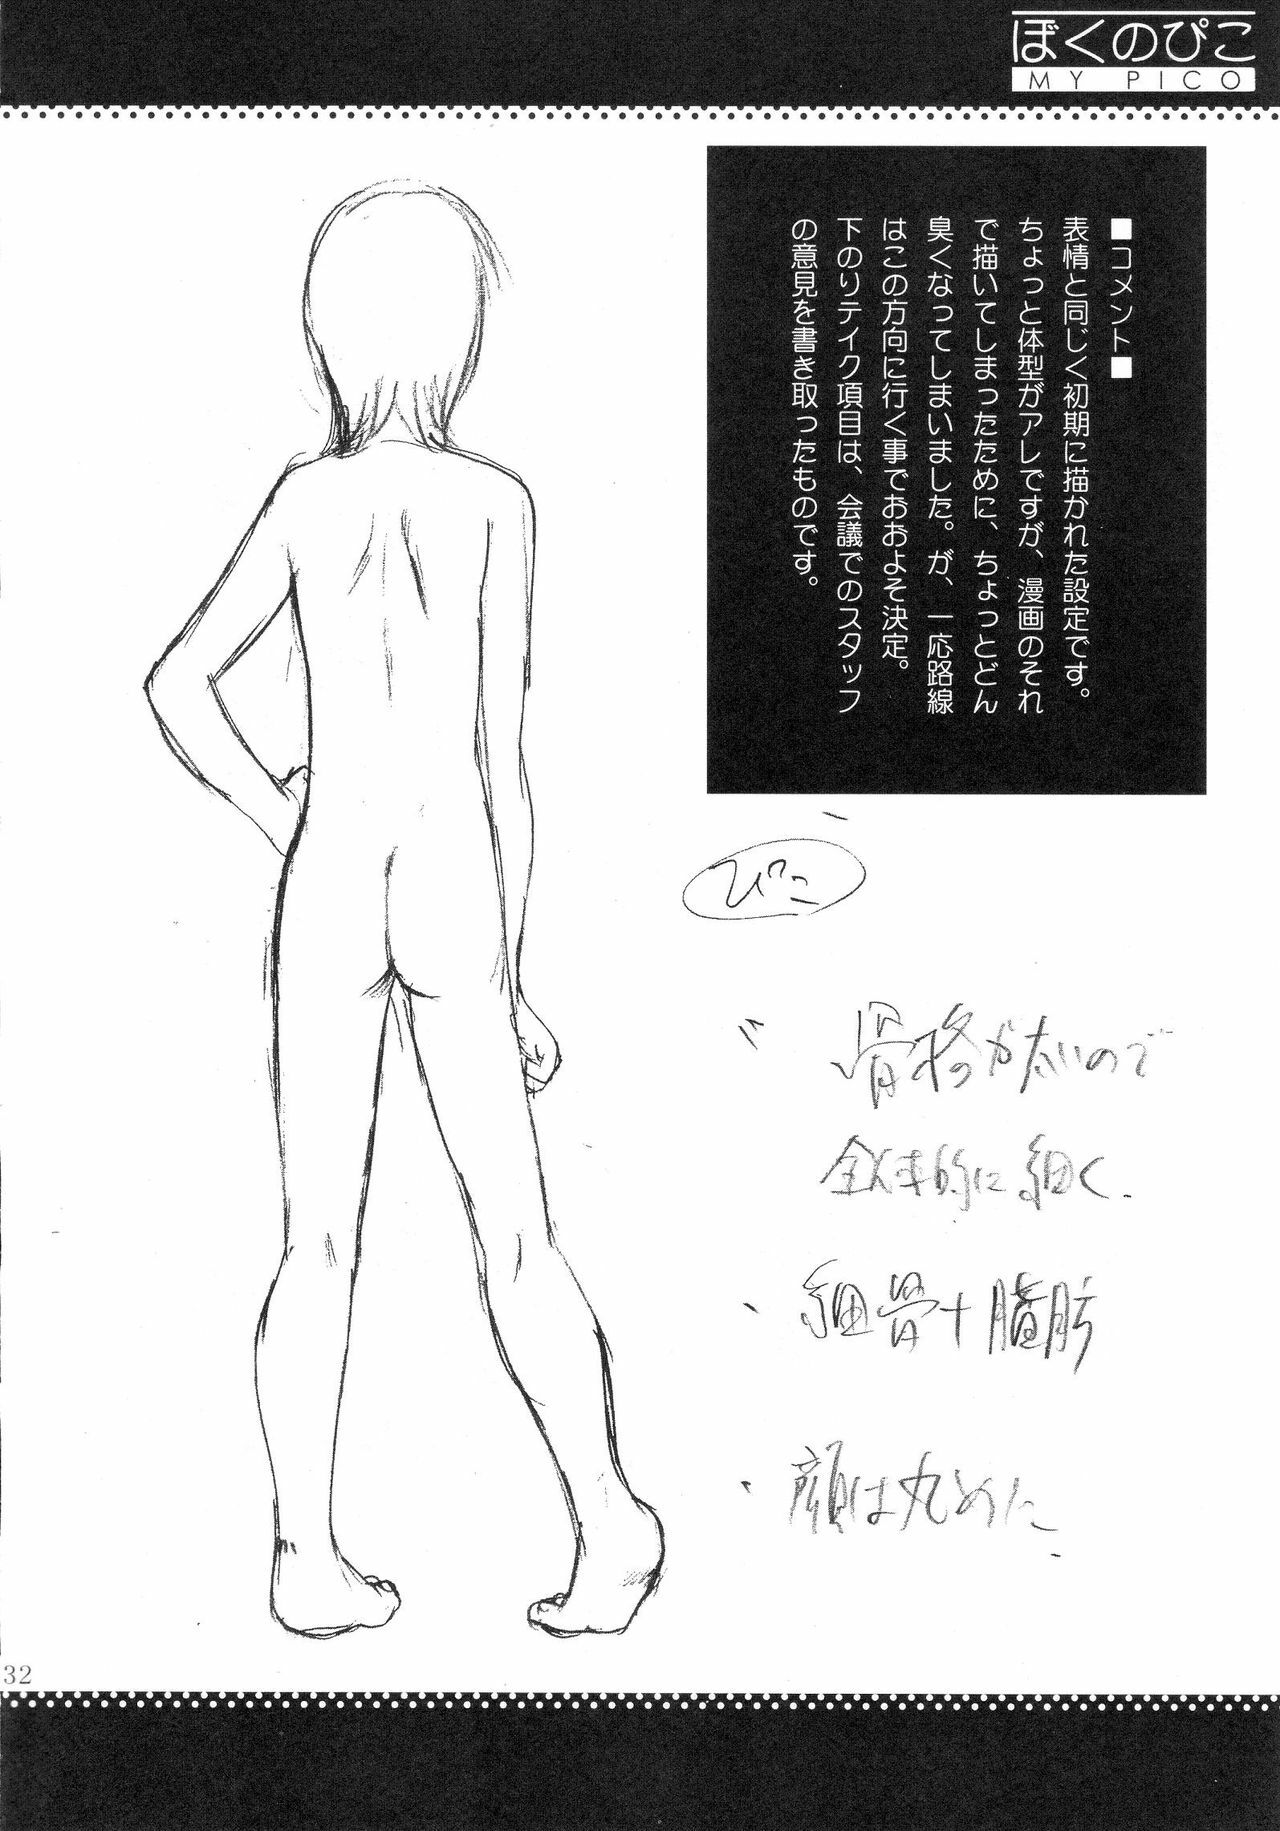 ぼくのぴこ
MY PICO
■コメント■
表情と同じく初期に描かれた設定です。
ちょっと体型がアレですが、漫画のそれ
で描いてしまったために、ちょっとどん
臭くなってしまいました。が、一応路線
はこの方向に行く事でおおよそ決定。
下のリテイク項目は、会議でのスタッフ
の意見を書き取ったものです。
ぴこ
骨格が太いので
全体的に細く
細骨+脂肪
顔は丸めた
32